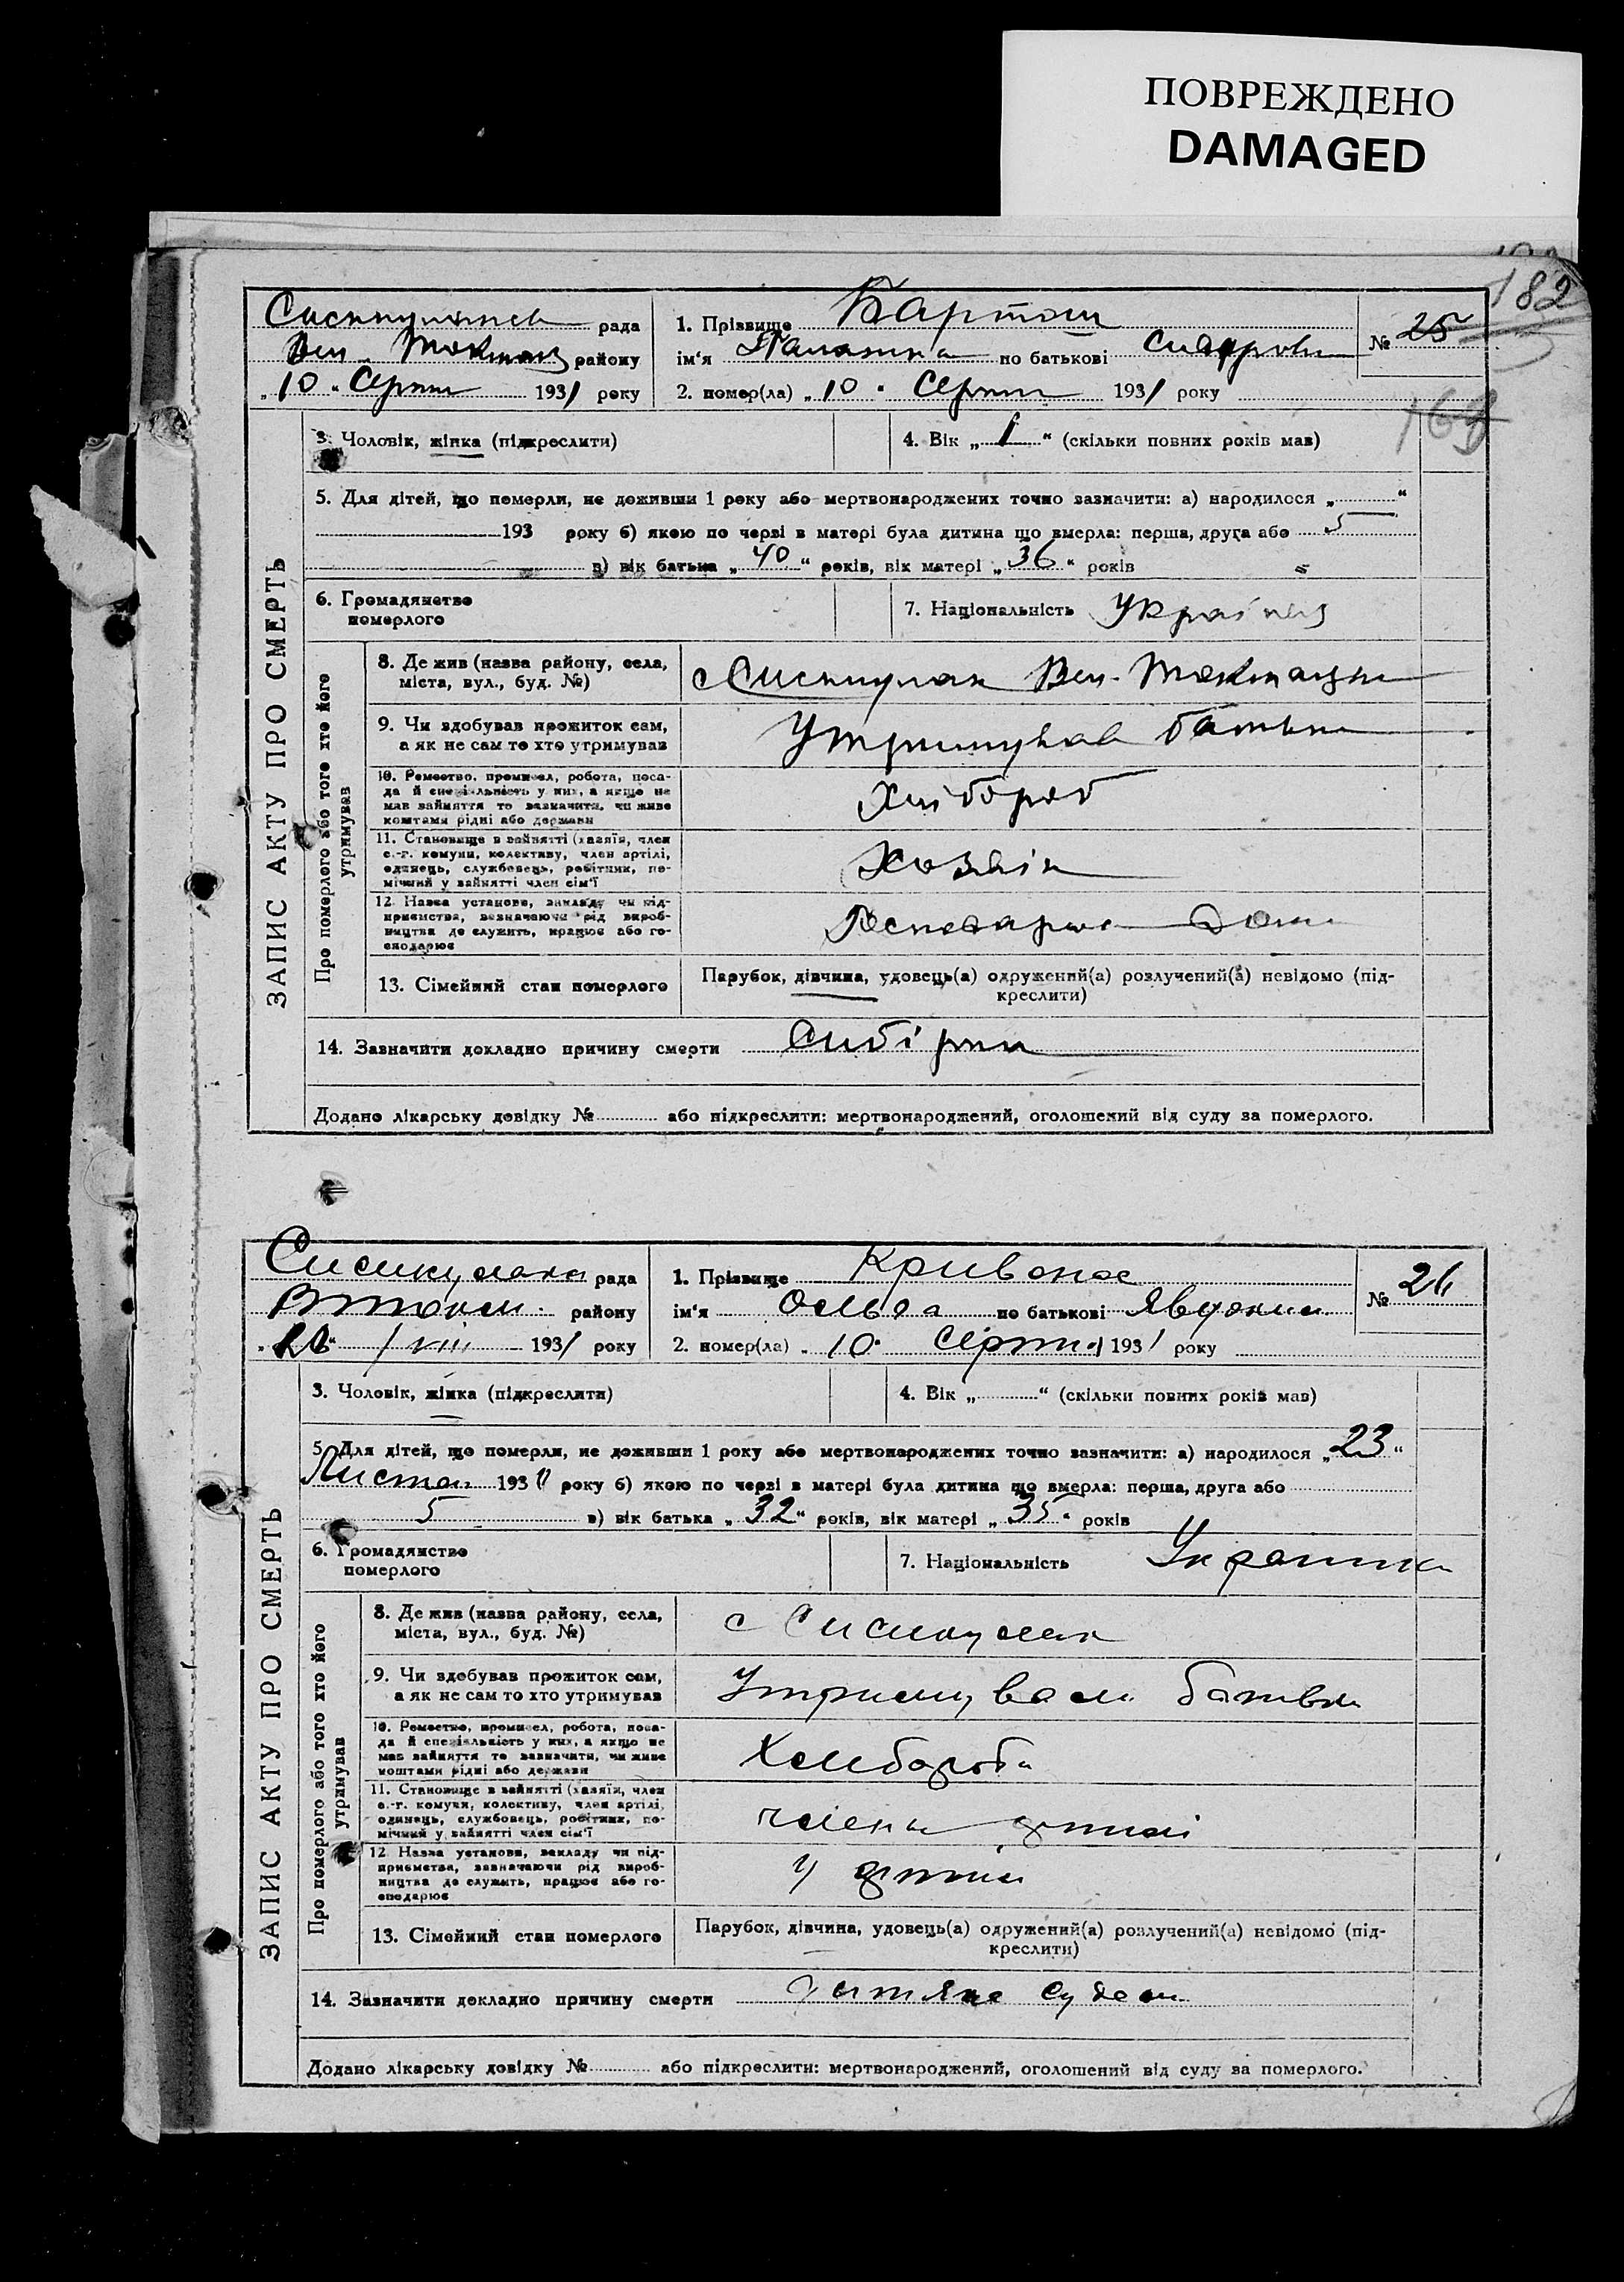 ПОВРЕЖДЕНО
DAMAGED
182
169
рада
району
„10“ Серпня 1931 року
1. Прізвище Бартош
ім‘я по батькові
№ 25
2. помер(ла) „10“ Серпня 1931 року
ЗАПИС АКТУ ПРО СМЕРТЬ
3. Чоловік, жінка (підкреслити)
4. Вік „1“ (скільки повних років мав)
5. Для дітей, що померли, не доживши 1 року або мертвонароджених точно зазначити: а) народилося „ “
193 року б) якою по черзі в матері була дитина що вмерла: перша, друга або 5
в) вік батька „40“ років, вік матері „36“ років
6. Громадянство
померлого
7. Національність
Про померлого або того хто його
утримував
8. Де жив (назва району, села,
міста, вул., буд. №)
9. Чи здобував прожиток сам,
а як не сам то хто утримував
Утримував батько
10. Ремество, промисел, робота, поса-
да й спеціальність у них, а якщо не
мав зайняття то зазначити, чи живе
коштами рідні або держави
Хлібороб
11. Становище в зайнятті (хазяїн, член
с.-г. комуни, колективу, член артілі,
одинець, службовець, робітник, по-
мічний у зайнятті член сім‘ї
Хозяїн
12. Назва установи, закладу чи під-
приємства, зазначаючи рід вироб-
ництва де служить, працює або го-
сподарює
13. Сімейний стан померлого
Парубок, дівчина, удовець(а) одружений(а) розлучений(а) невідомо (під-
креслити)
14. Зазначити докладно причину смерти
Додано лікарську довідку № або підкреслити: мертвонароджений, оголошений від суду за померлого.
рада
району
VIII 1931 року
1. Прізвище Кривонос
ім‘я Ольга по батькові
№ 26
2. помер(ла) „10“ Серпня 1931 року
ЗАПИС АКТУ ПРО СМЕРТЬ
3. Чоловік, жінка (підкреслити)
4. Вік „ “ (скільки повних років мав)
5. Для дітей, що померли, не доживши 1 року або мертвонароджених точно зазначити: а) народилося „23“
Листоп 193 року б) якою по черзі в матері була дитина що вмерла: перша, друга або
5 в) вік батька „32“ років, вік матері „35“ років
6. Громадянство
померлого
7. Національність
Про померлого або того хто його
утримував
8. Де жив (назва району, села,
міста, вул., буд. №)
9. Чи здобував прожиток сам,
а як не сам то хто утримував
Утримували батьки
10. Ремество, промисел, робота, поса-
да й спеціальність у них, а якщо не
мав зайняття то зазначити, чи живе
коштами рідні або держави
11. Становище в зайнятті (хазяїн, член
с.-г. комуни, колективу, член артілі,
одинець, службовець, робітник, по-
мічний у зайнятті член сім‘ї
12. Назва установи, закладу чи під-
приємства, зазначаючи рід вироб-
ництва де служить, працює або го-
сподарює
13. Сімейний стан померлого
Парубок, дівчина, удовець(а) одружений(а) розлучений(а) невідомо (під-
креслити)
14. Зазначити докладно причину смерти
Додано лікарську довідку № або підкреслити: мертвонароджений, оголошений від суду за померлого.